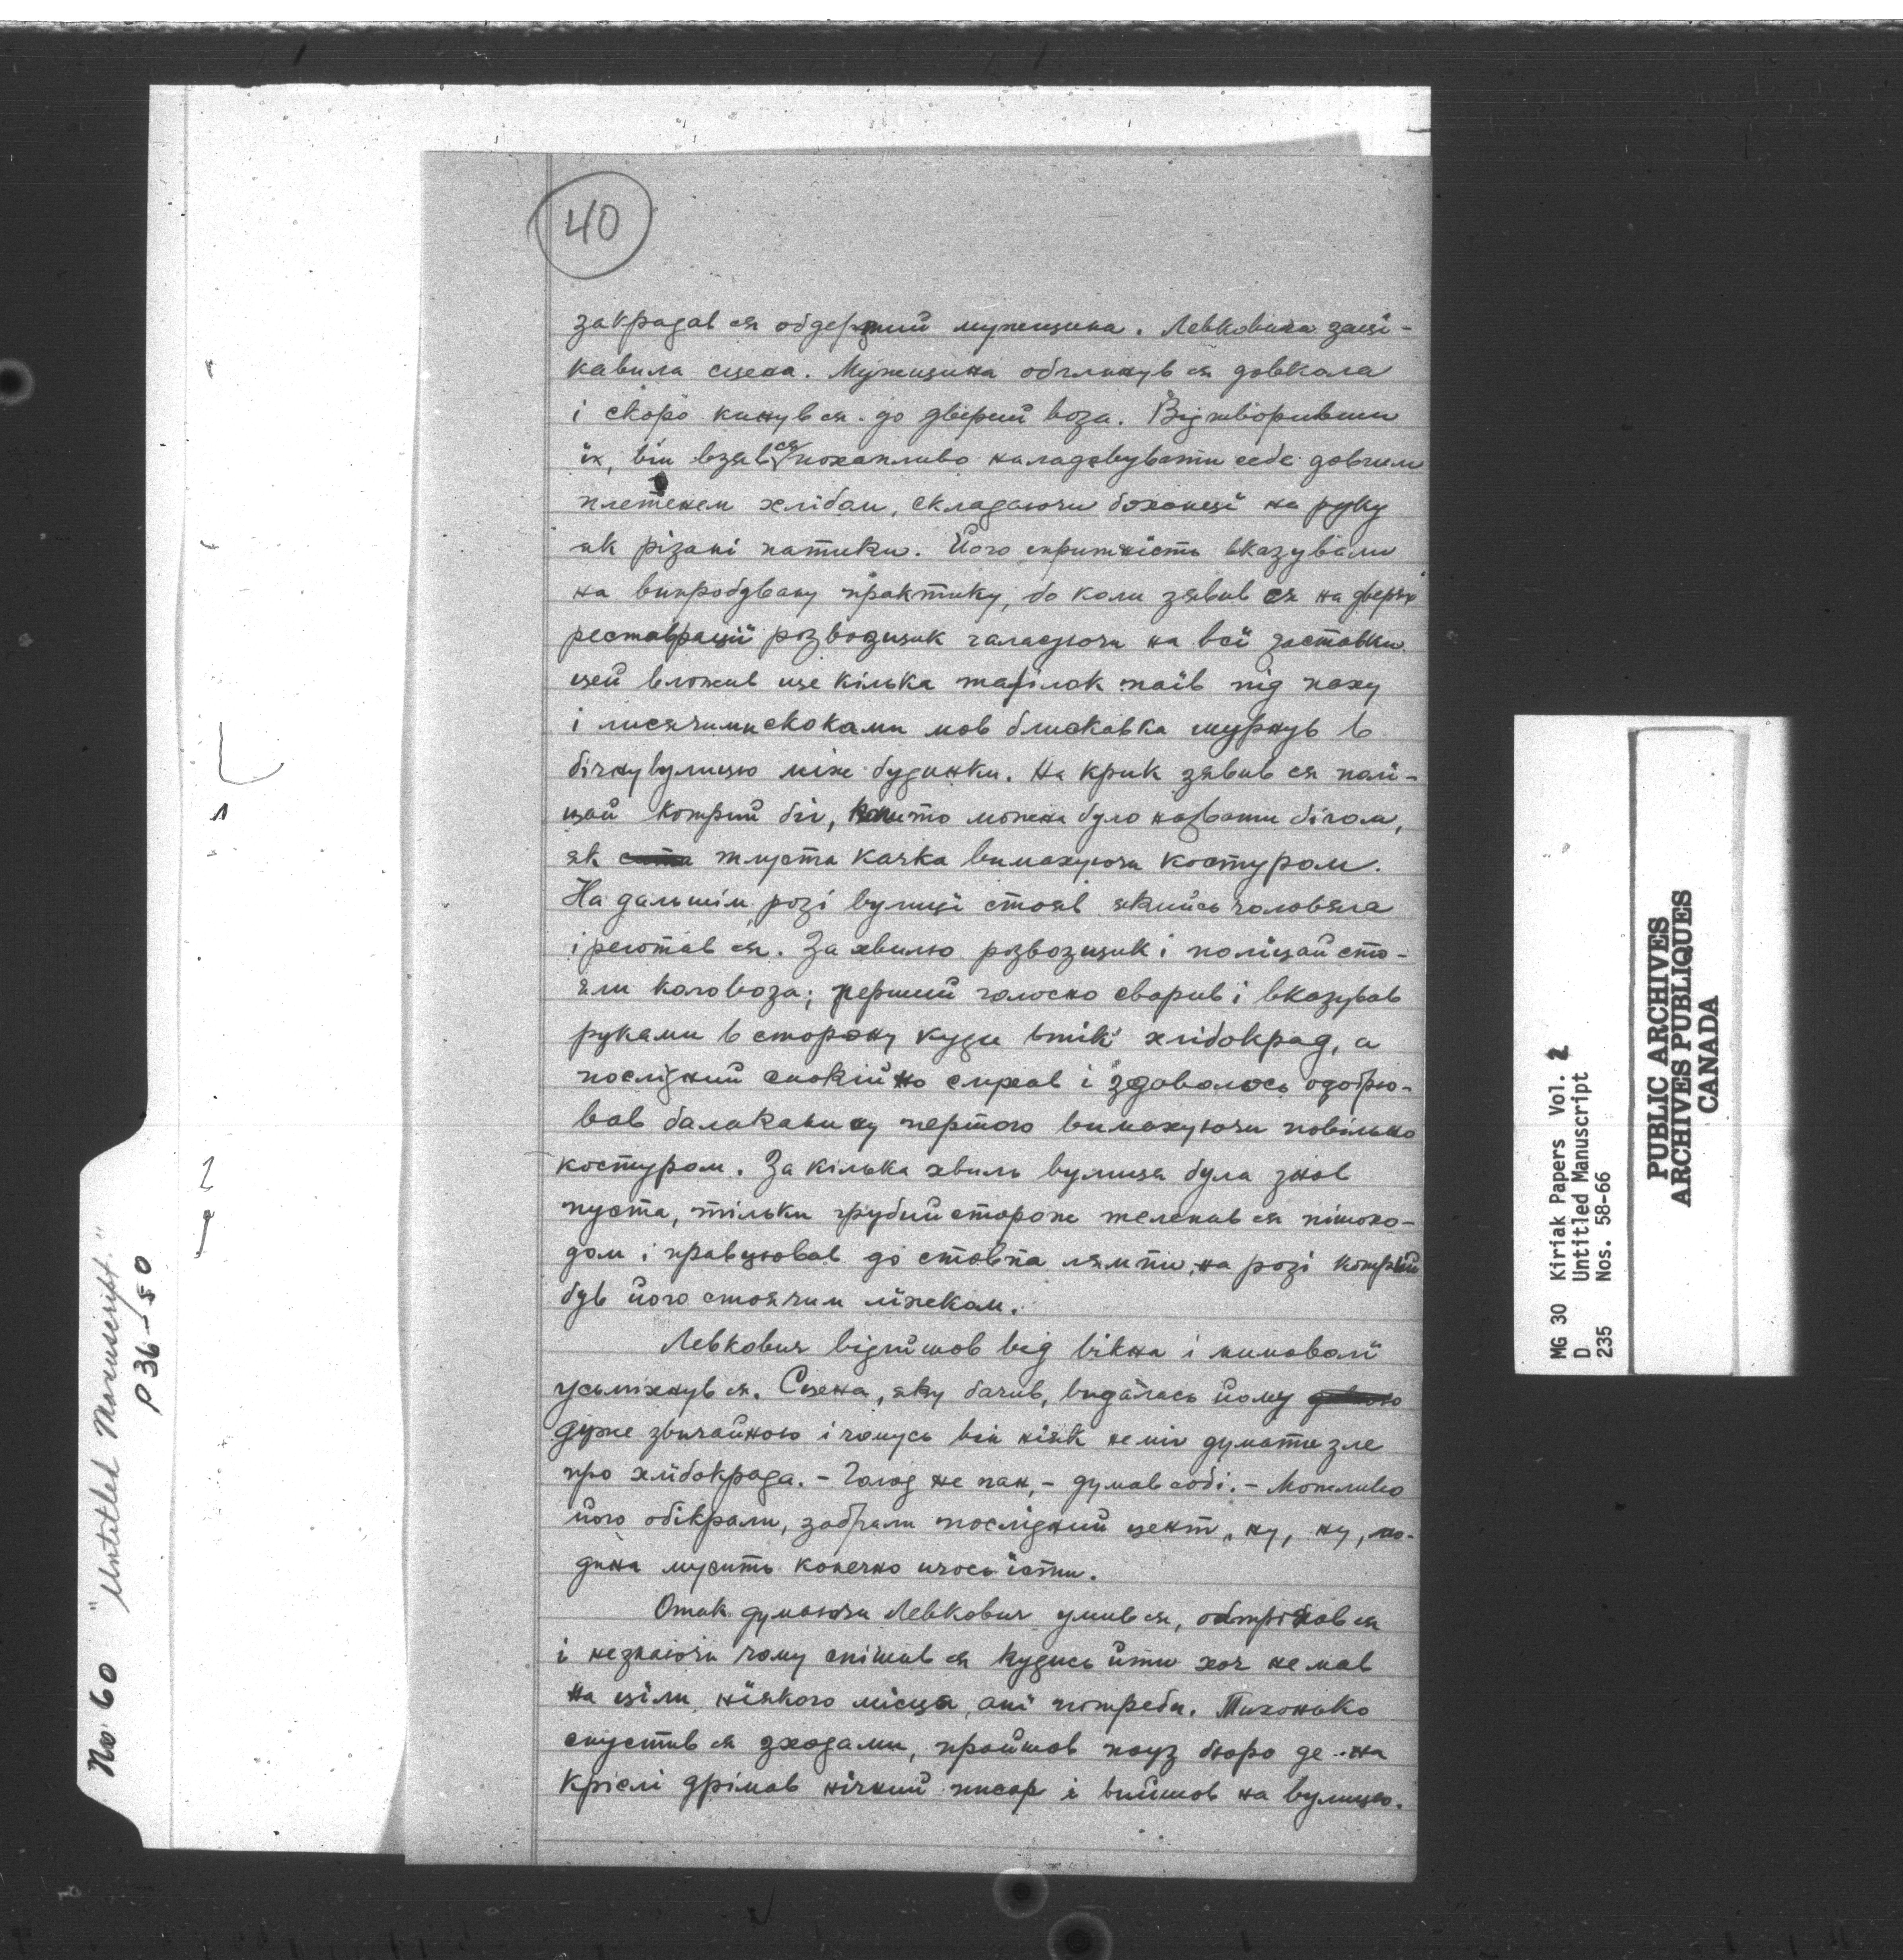 40
закрадав ся обдертий мужещина. Левковича заці-
кавила сцена. Мужещина обглянув ся довкала
і скоро кинув ся до дверий воза. Відтворивши
їх, він взяв ся похапливо наладовувати себе довгим
плетенем хлібам, складаючи боханці на руку
як різані патики. Його спритність вказували
на випробувану практику, бо коли зявив ся на дверях
реставрації розвозщик галасуючи на всї заставки
цей вложив ще кілька тарілок паїв під паху
і лисячими скоками мов блискавка шурнув в
бічну вулицю між будинки. На крик зявив ся полі-
цай котрий біг, можна було назвати бігом,
як тлуста качка вимахуючи костуром.
На дальшім розі вулиці стояв якийсь чоловяга
і реготав ся. За хвилю розвозщик і поліцай сто-
яли коло воза; перший голосно сварив і вказував
руками в сторону куди втік хлібокрад, а
послідний спокійно слухав і здавалось одобрю-
вав балаканину першого вимахуючи повільно
костуром. За кілька хвиль вулиця була знов
пуста, тільки грубий сторож телепав ся пішохо-
дом і правцював до стовпа лямпи на розі котрий
був його стоячим ліжком.
Левкович відийшов від вікна і мимоволї
усьміхнув ся. Сцена, яку бачив, видалась йому
дуже звичайною і чомусь він нїяк не міг думати зле
про хлїбокрада. - Голод не пан, - думав собі. - Можливо
його обікрали, забрали послідний цент, ну, ну, лю-
дина мусить конечно щось їсти.
Отак думаючи Левкович умив ся, обтріпав ся
і незнаючи чому спішив ся кудись йти хоч не мав
на ціли нїякого місця, анї потреби. Тихонько
спустив ся зходами, пройшов поуз бюро де на
кріслі дрімав нічний писар і вийшов на вулицю.
No 60 "Untitled Manuscript."
p 36-50
MG 30 Kiriak Papers Vol. 2
D Untitled Manuscript
235 Nos. 58-66
PUBLIC ARCHIVES
ARCHIVES PUBLIQUES
CANADA